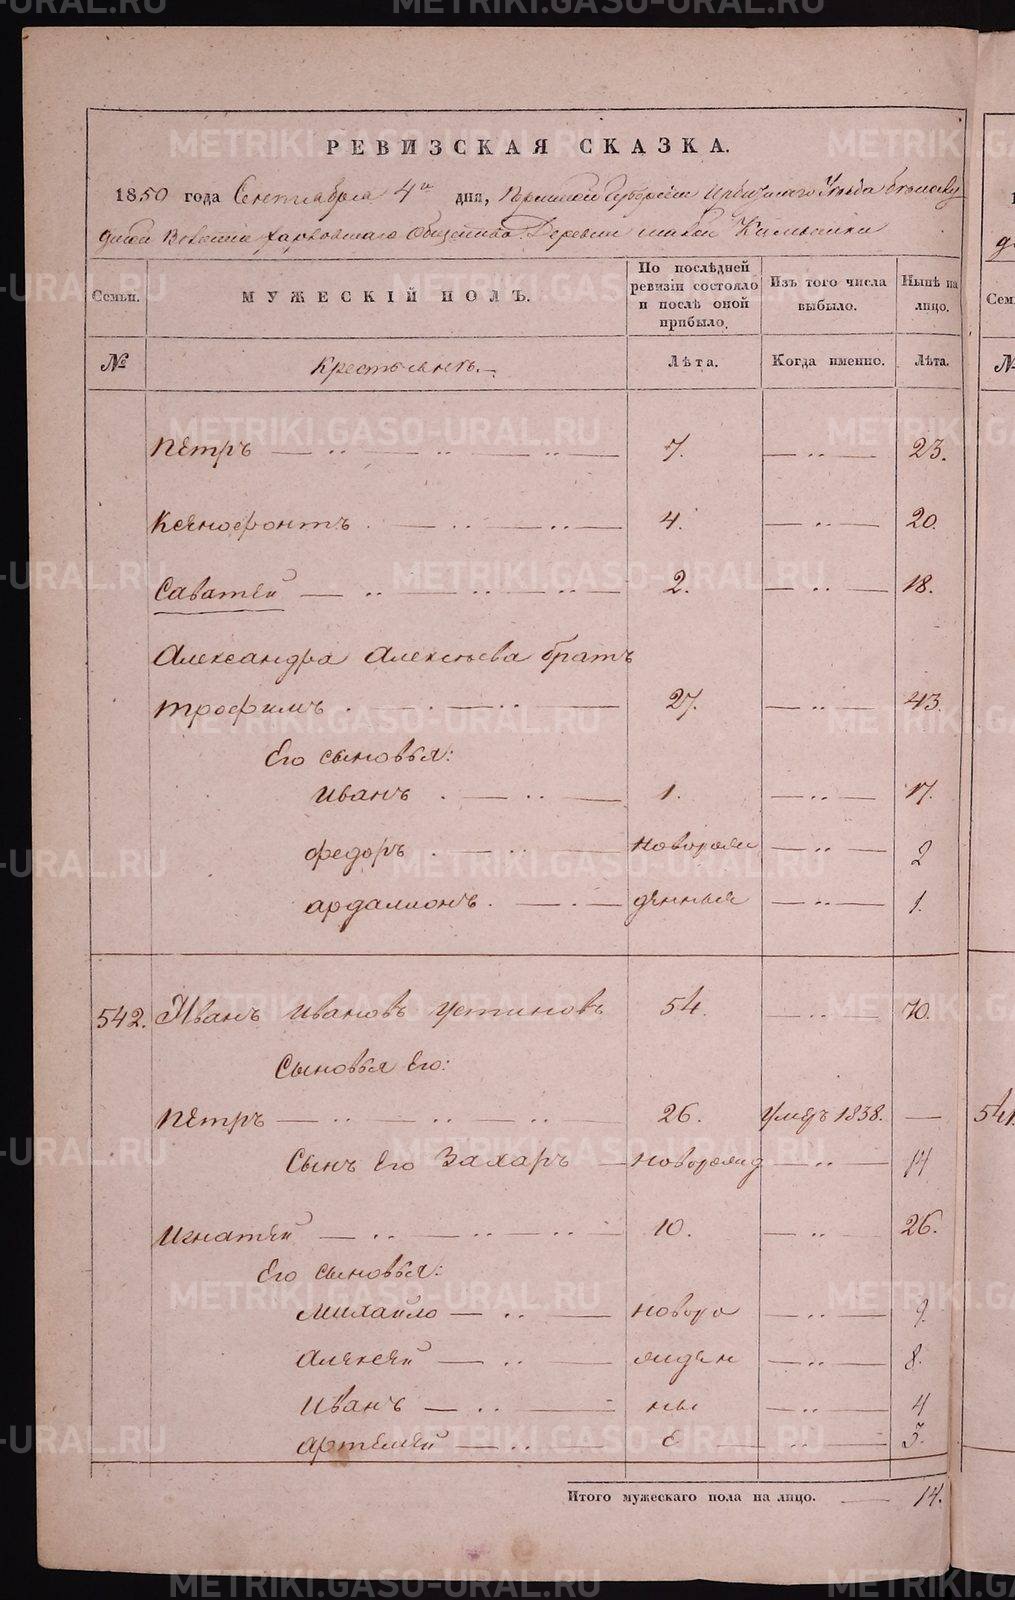 РЕВИЗСКАЯ СКАЗКА.
1850 года Сентября 4го дня, Пермской Губерніи Ирбитскаго Уезда Белослуд
ской Волости Харловскаго Общества Деревни
Семьи. МУЖЕСКІЙ ПОЛЪ. По послѣдней ревизіи состояло и послѣ оной прибыло. Изъ того числа выбыло. Нынѣ на лицо.
№ Крестьянъ. Лѣта. Когда именно. Лѣта.
Петръ 7. 23.
Ксенофонтъ 4. 20.
Саватей 2. 18.
Александра Алексѣева братъ
Трофимъ 27. 43.
Его сыновья:
Иванъ 1. 17.
Федоръ новорож 2
Ардалионъ денныя 1.
542. Иванъ Ивановъ Устиновъ 54. 70.
Сыновья Его:
Петръ 26. Умеръ 1838.
Сынъ Его Захаръ новорожд 14
Игнатей 10. 26.
Его сыновья:
Михайло новоро 9.
Алексей жден 8.
Иванъ ны 4
Артемей е 3.
Итого мужескаго пола на лицо. 14.
541.
METRIKI.GASO-URAL.RU